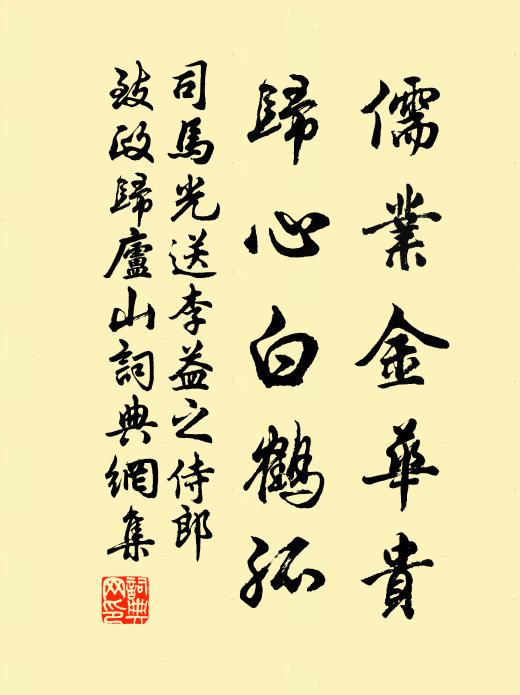 儒業金華貴
歸心白鶴孤
司馬光送李益之侍郎
致政歸廬山詞典網集
詞典網印